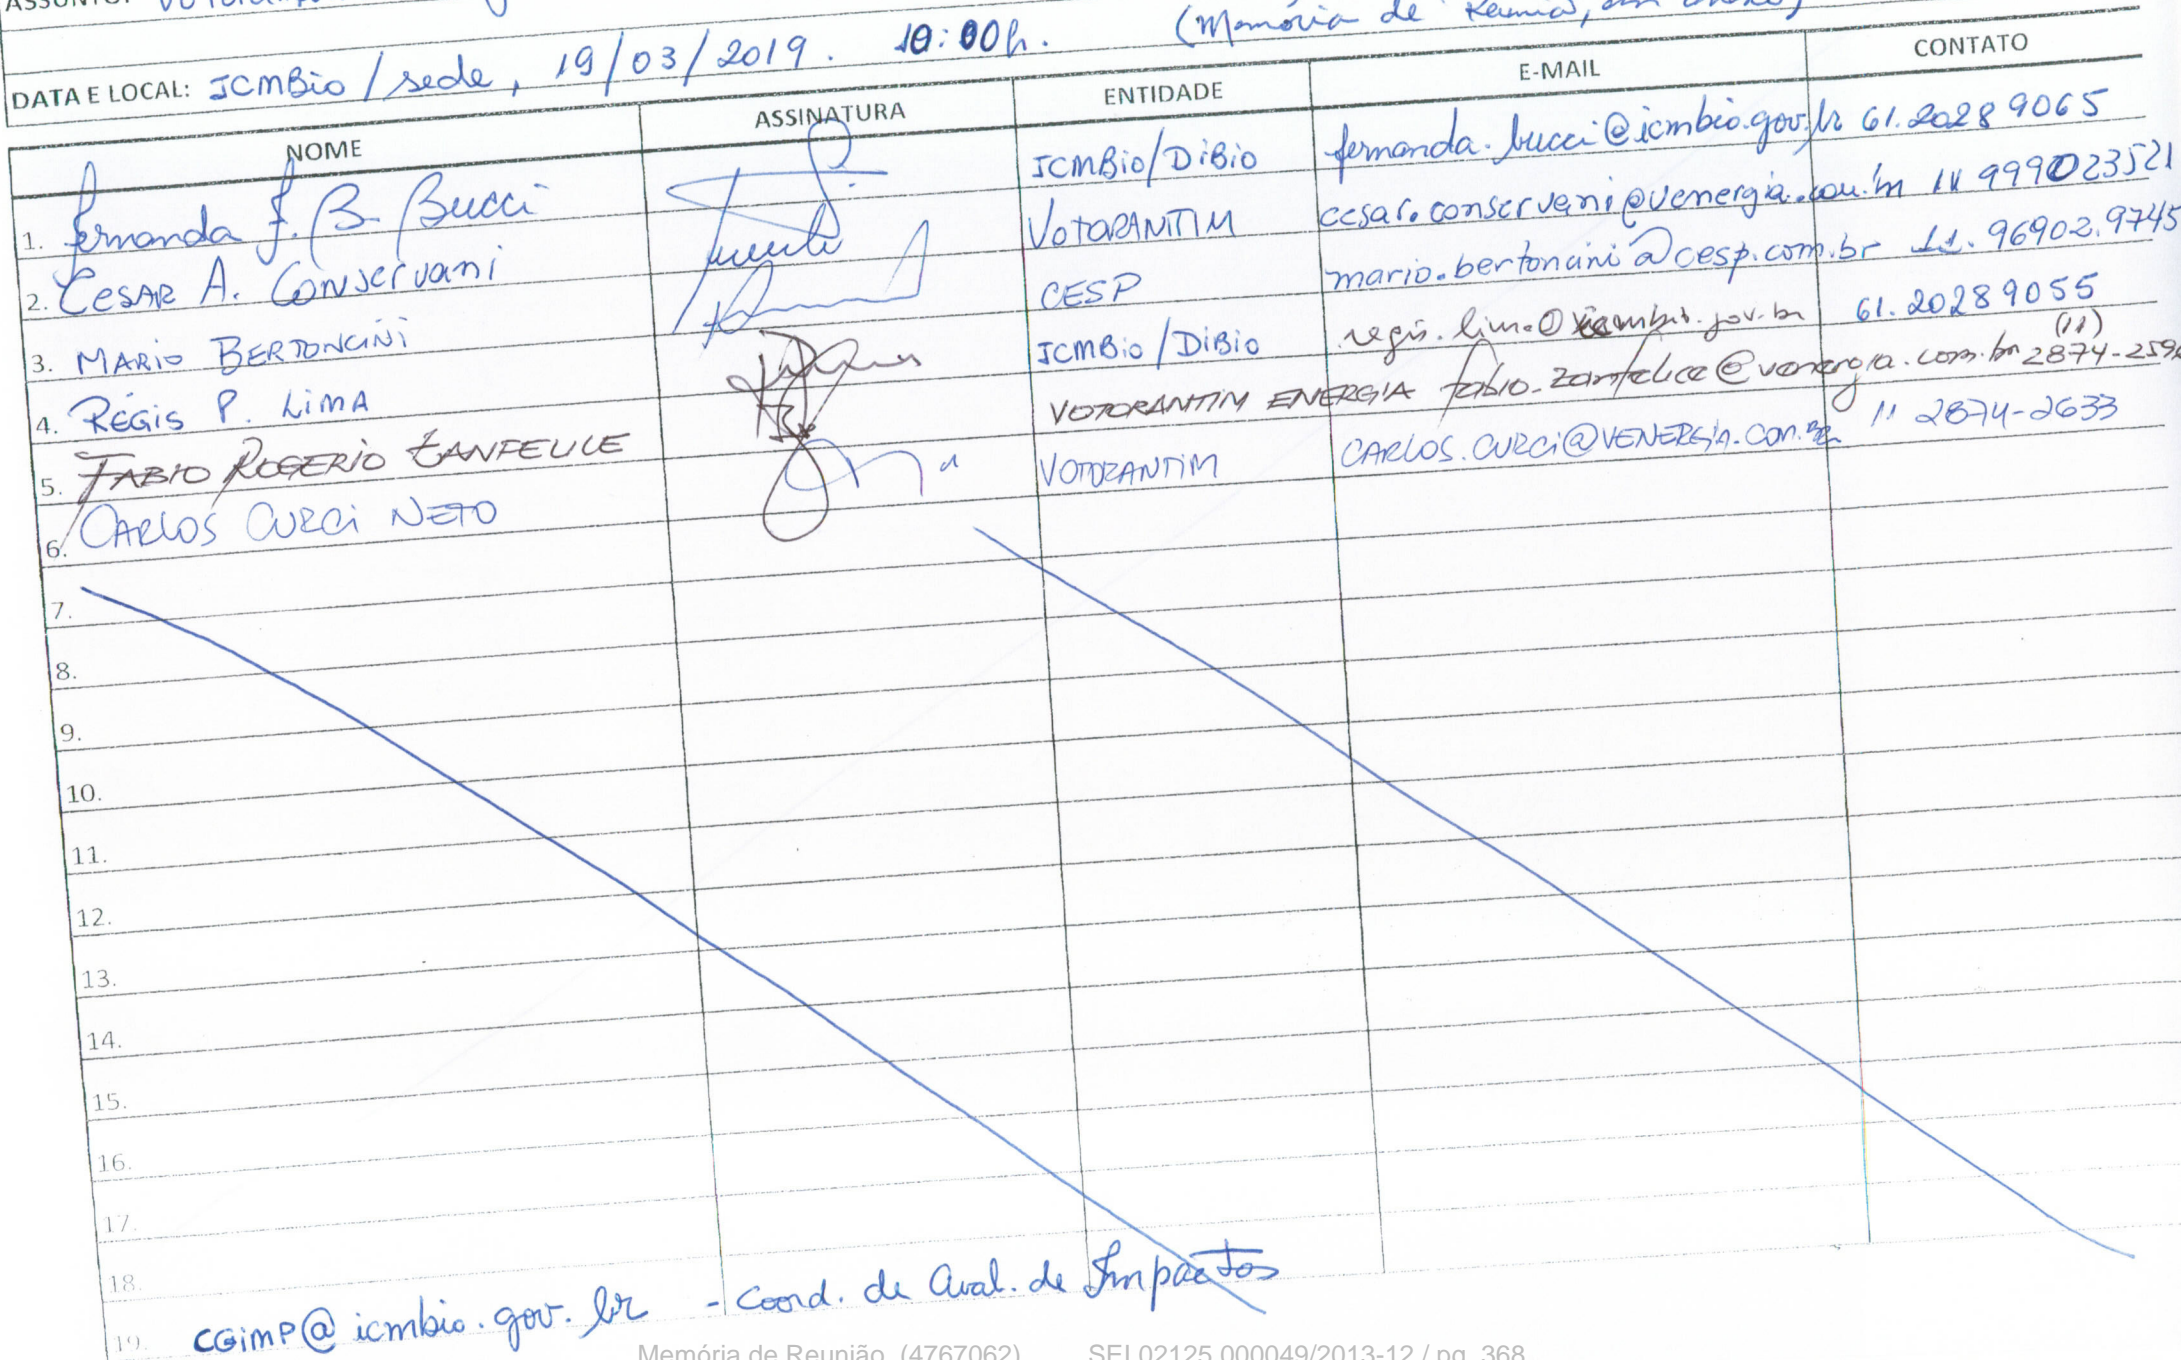 ASSUNTO:
(Memória de Reunião, em anexo)
DATA E LOCAL: ICMBio / sede, 19/03/2019. 10:00h.
NOME ASSINATURA ENTIDADE E-MAIL CONTATO
1. Fernanda F. B. Bucci ICMBio/DiBio fernanda.bucci@icmbio.gov.br 61.2028 9065
2. CESAR A. Conservani VOTORANTIM cesar.conservani@venergia.com.br 11 999023521
3. MARIO BERTONCINI CESP mario.bertoncini@cesp.com.br 11.96902.9745
4. REGIS P. LIMA ICMBio/DiBio regis.lima@icmbio.gov.br 61.20289055
5. FABIO ROGERIO ZANFELICE VOTORANTIM ENERGIA fabio.zanfelice@venergia.com.br (11) 2874-259
6. CARLOS CURCI NETO VOTORANTIM CARLOS.CURCI@VENERGIA.COM.BR 11 2874-2633
7.
8.
9.
10.
11.
12.
13.
14.
15.
16.
17.
18.
19. CGIMP@icmbio.gov.br - Coord. de Aval. de Impactos
Memória de Reunião (4767062) SEI 02125.000049/2013-12 / pg. 368